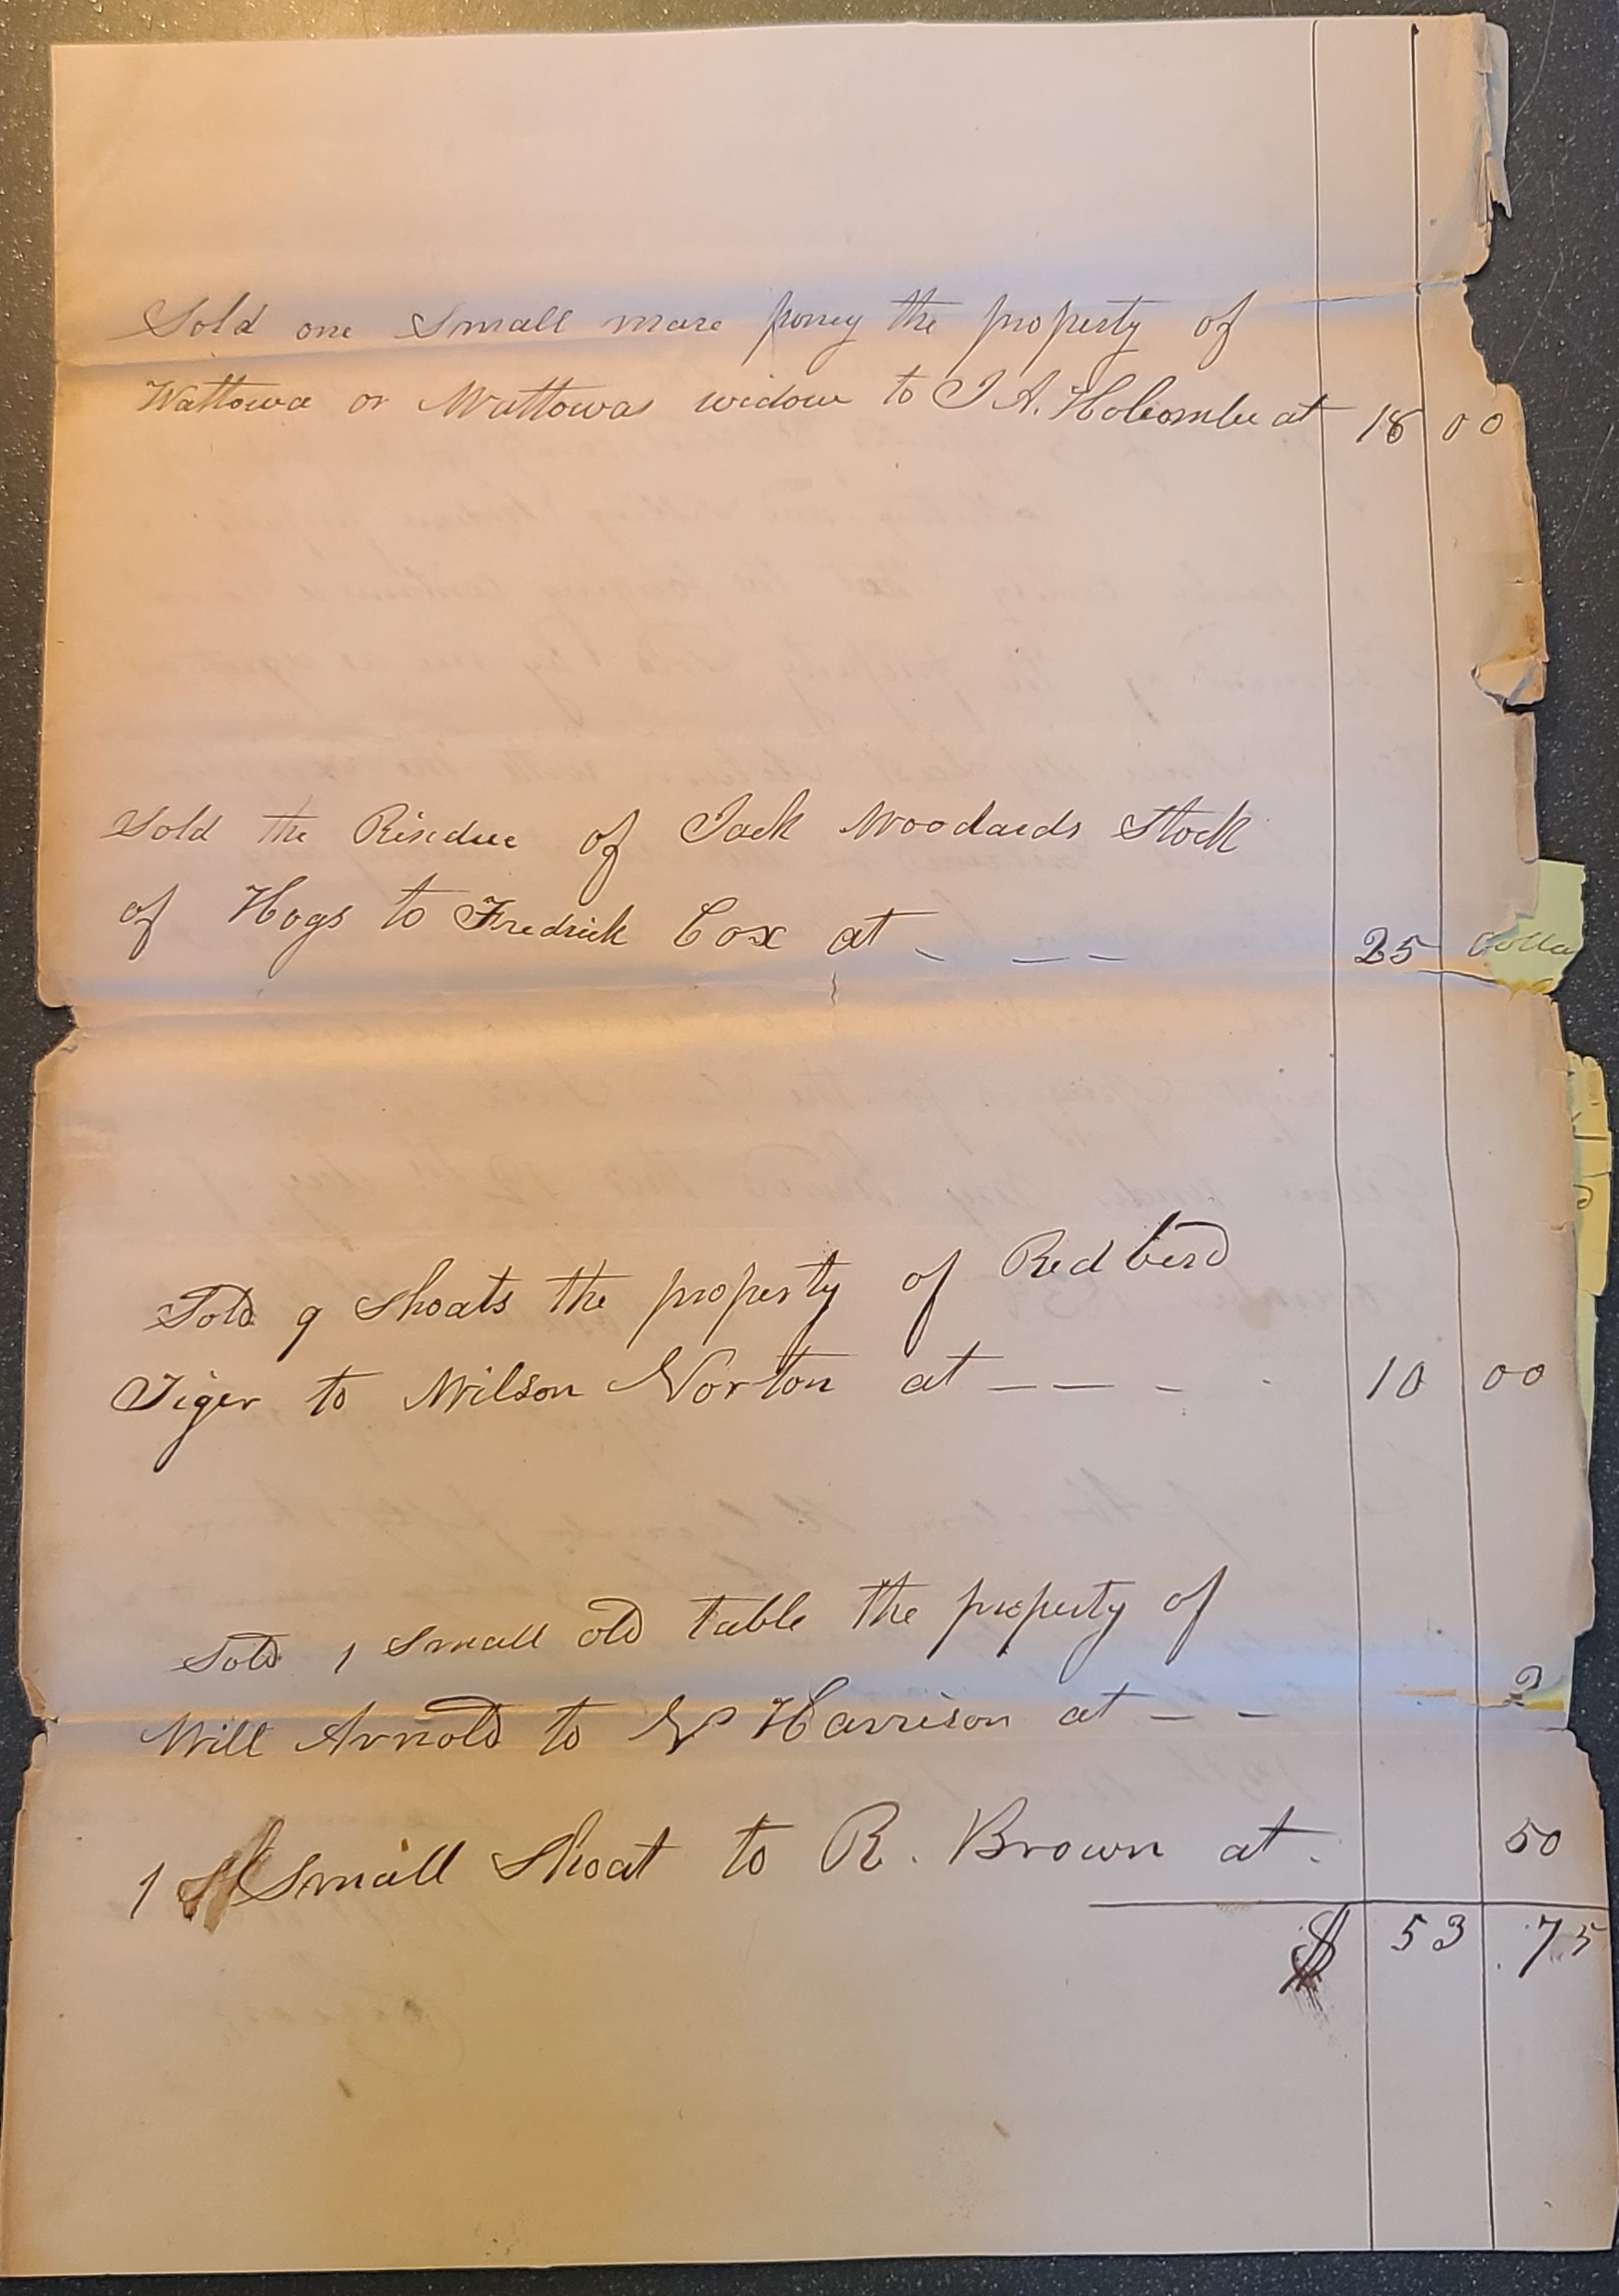 Sold one Small mare poney the property of
Wattowa or Wattowas widow to J A. Holcombe at 18 00
Sold the Risedue of Jack Woodards Stock
of Hogs to Fredrick Cox at - - - 25 Dolla
Sold 9 Shoats the property of Redbird
Tiger to Wilson Norton at - - - - 10 00
Sold 1 Small old table the property of
Will Arnold to Harrison at - - 2
1 Small Shoat to R. Brown at. 50
$ 53 .75